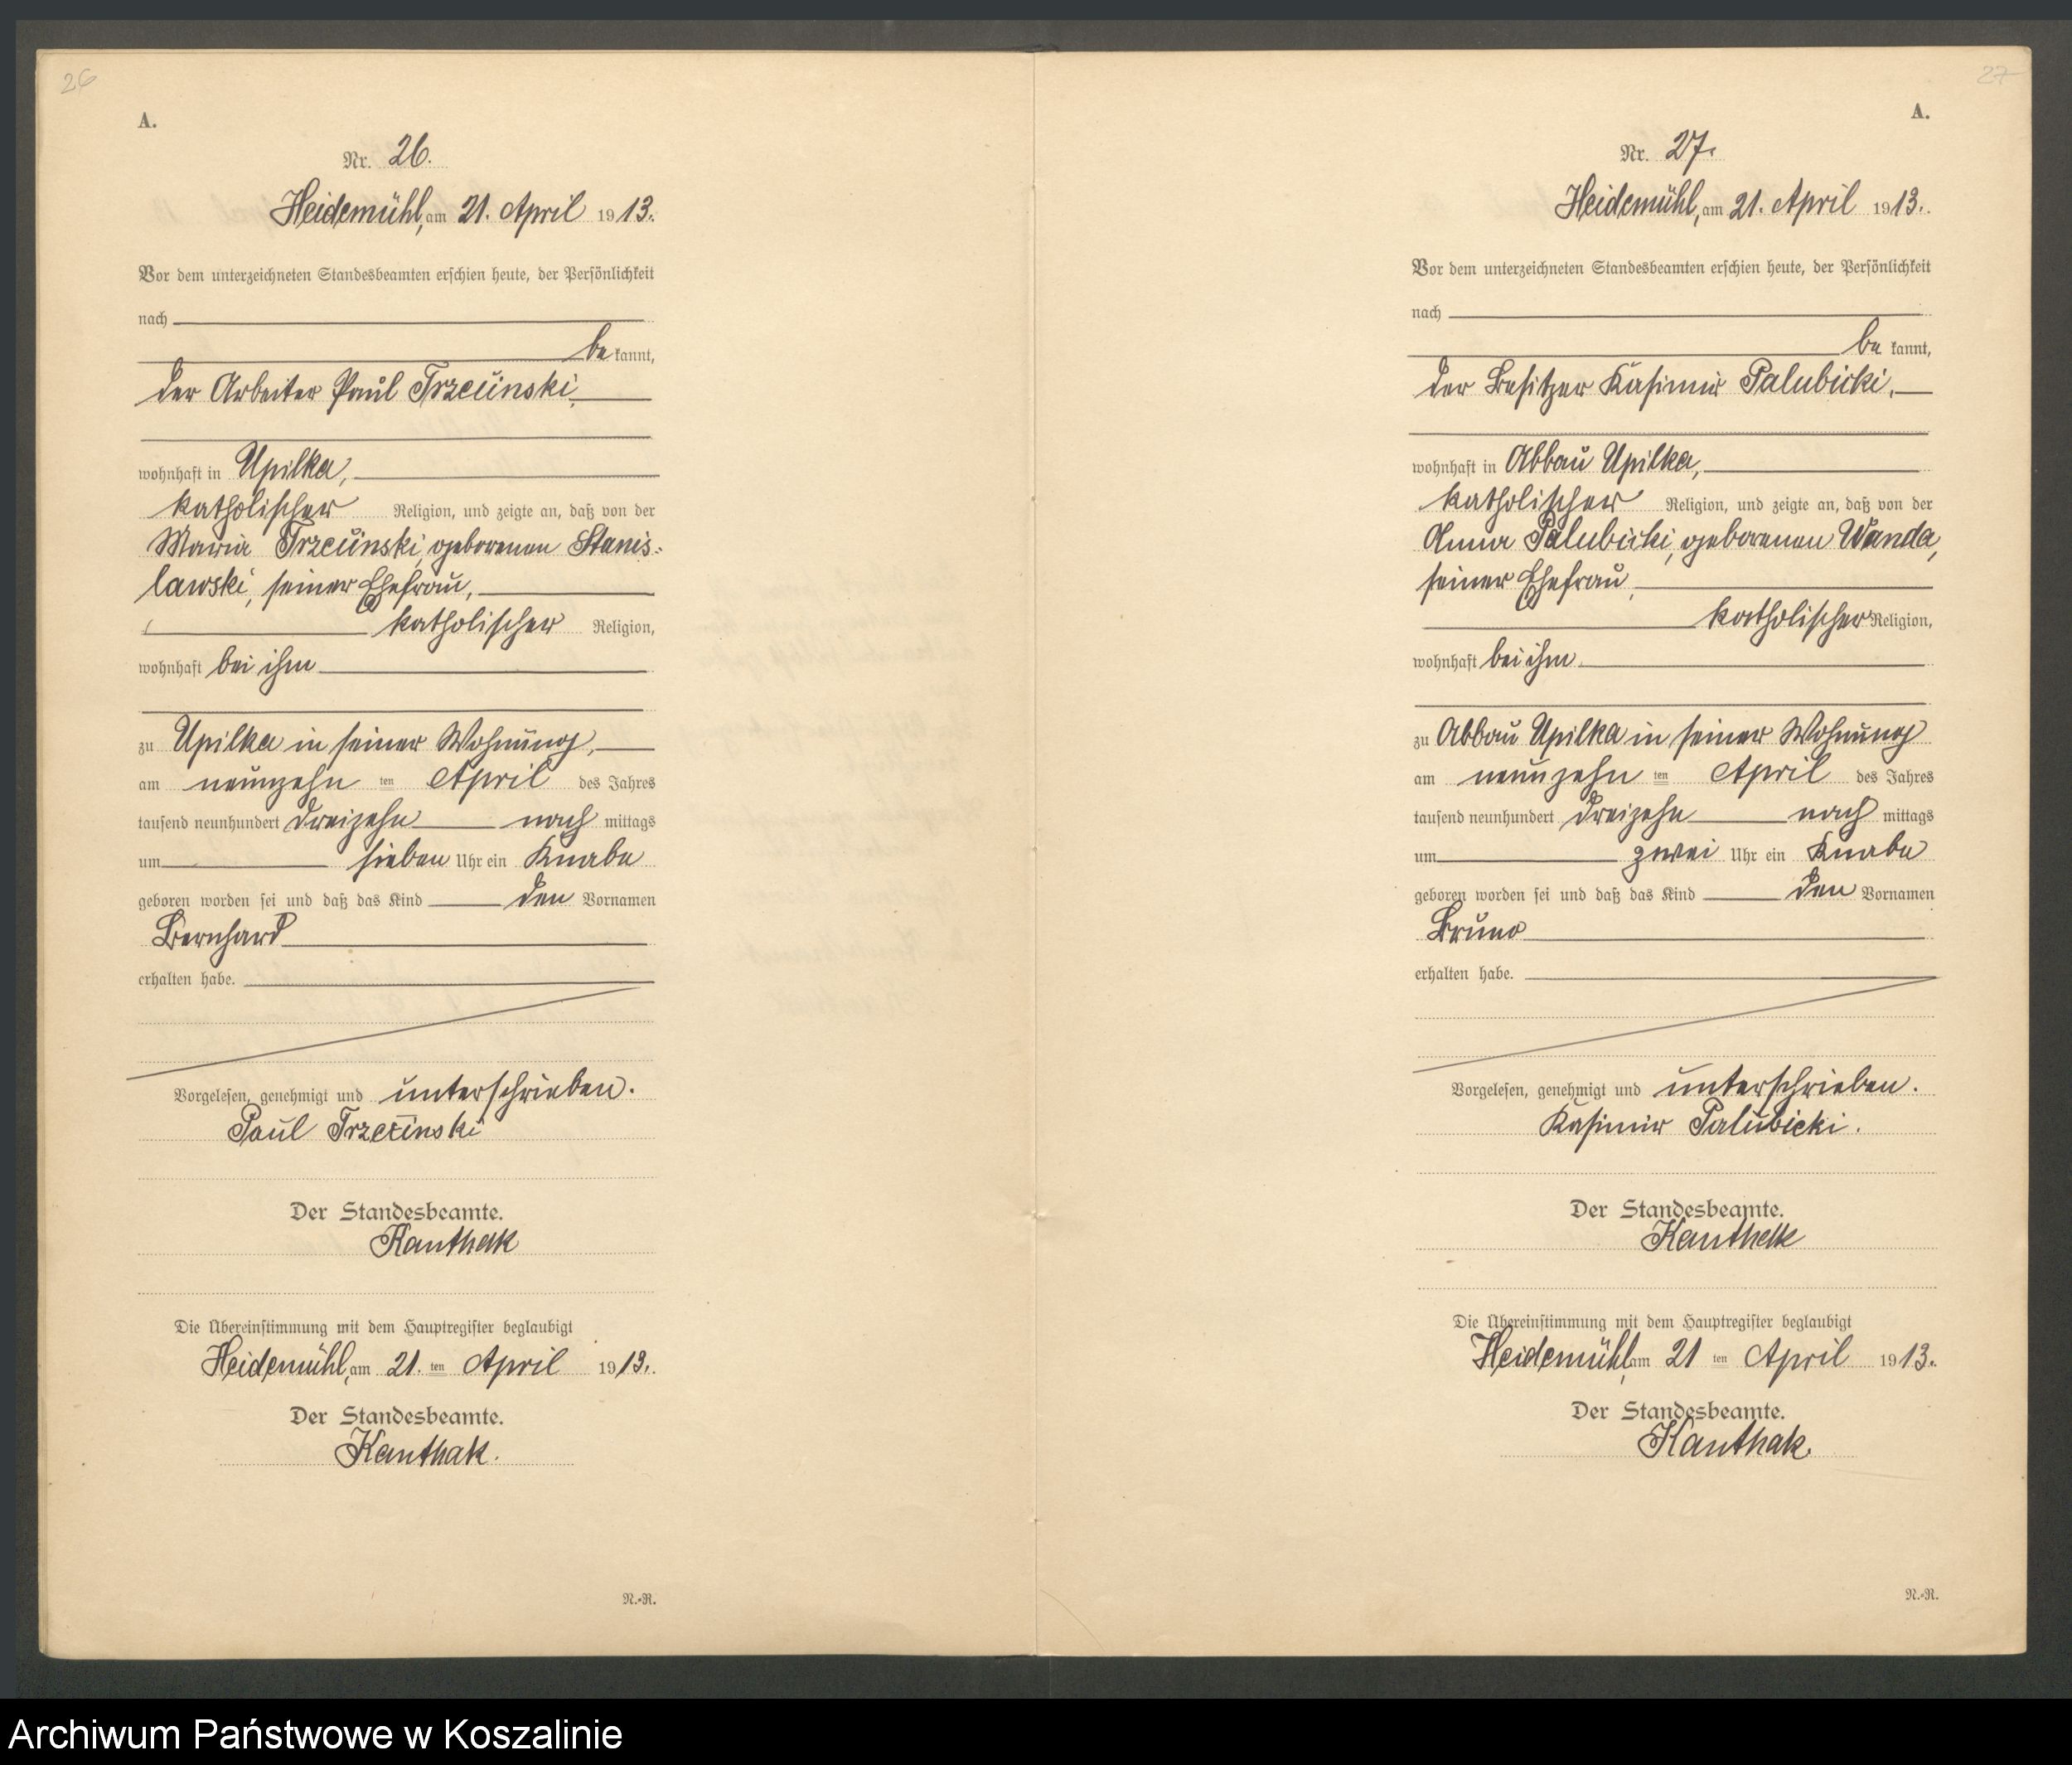 26
A.
Nr. 26.
Heidemühl, am 21. April 1913.
Vor dem unterzeichneten Standesbeamten erschien heute, der Persönlichkeit
nach
be kannt,
der Arbeiter Paul Trzeünski,
wohnhaft in Upilka,
katholischer Religion, und zeigte an, daß von der
Maria Trzeünski, geborenen Stanis=
lawski, seiner Ehefrau,
katholischer Religion,
wohnhaft bei ihm
zu Upilka in seiner Wohnung,
am neunzehn ten April des Jahres
tausend neunhundert dreizehn nach mittags
um sieben Uhr ein Knabe
geboren worden sei und daß das Kind den Vornamen
Bernhard
erhalten habe.
Vorgelesen, genehmigt und unterschrieben.
Paul Trzeinski
Der Standesbeamte.
Kanthak
Die Übereinstimmung mit dem Hauptregister beglaubigt
Heidemühl, am 21. ten April 1913.
Der Standesbeamte.
Kanthak.
N.-R.
27
A.
Nr. 27.
Heidemühl, am 21. April 1913.
Vor dem unterzeichneten Standesbeamten erschien heute, der Persönlichkeit
nach
be kannt,
der Besitzer Kasimir Palubicki,
wohnhaft in Abbau Upilka,
katholischer Religion, und zeigte an, daß von der
Anna Palubicki, geborenen Wanda,
seiner Ehefrau,
katholischer Religion,
wohnhaft bei ihm
zu Abbau Upilka in seiner Wohnung
am neunzehn ten April des Jahres
tausend neunhundert dreizehn nach mittags
um zwei Uhr ein Knabe
geboren worden sei und daß das Kind den Vornamen
Bruno
erhalten habe.
Vorgelesen, genehmigt und unterschrieben.
Kasimir Palubicki.
Der Standesbeamte.
Kanthak
Die Übereinstimmung mit dem Hauptregister beglaubigt
Heidemühl, am 21 ten April 1913.
Der Standesbeamte.
Kanthak.
N.-R.
Archiwum Państwowe w Koszalinie